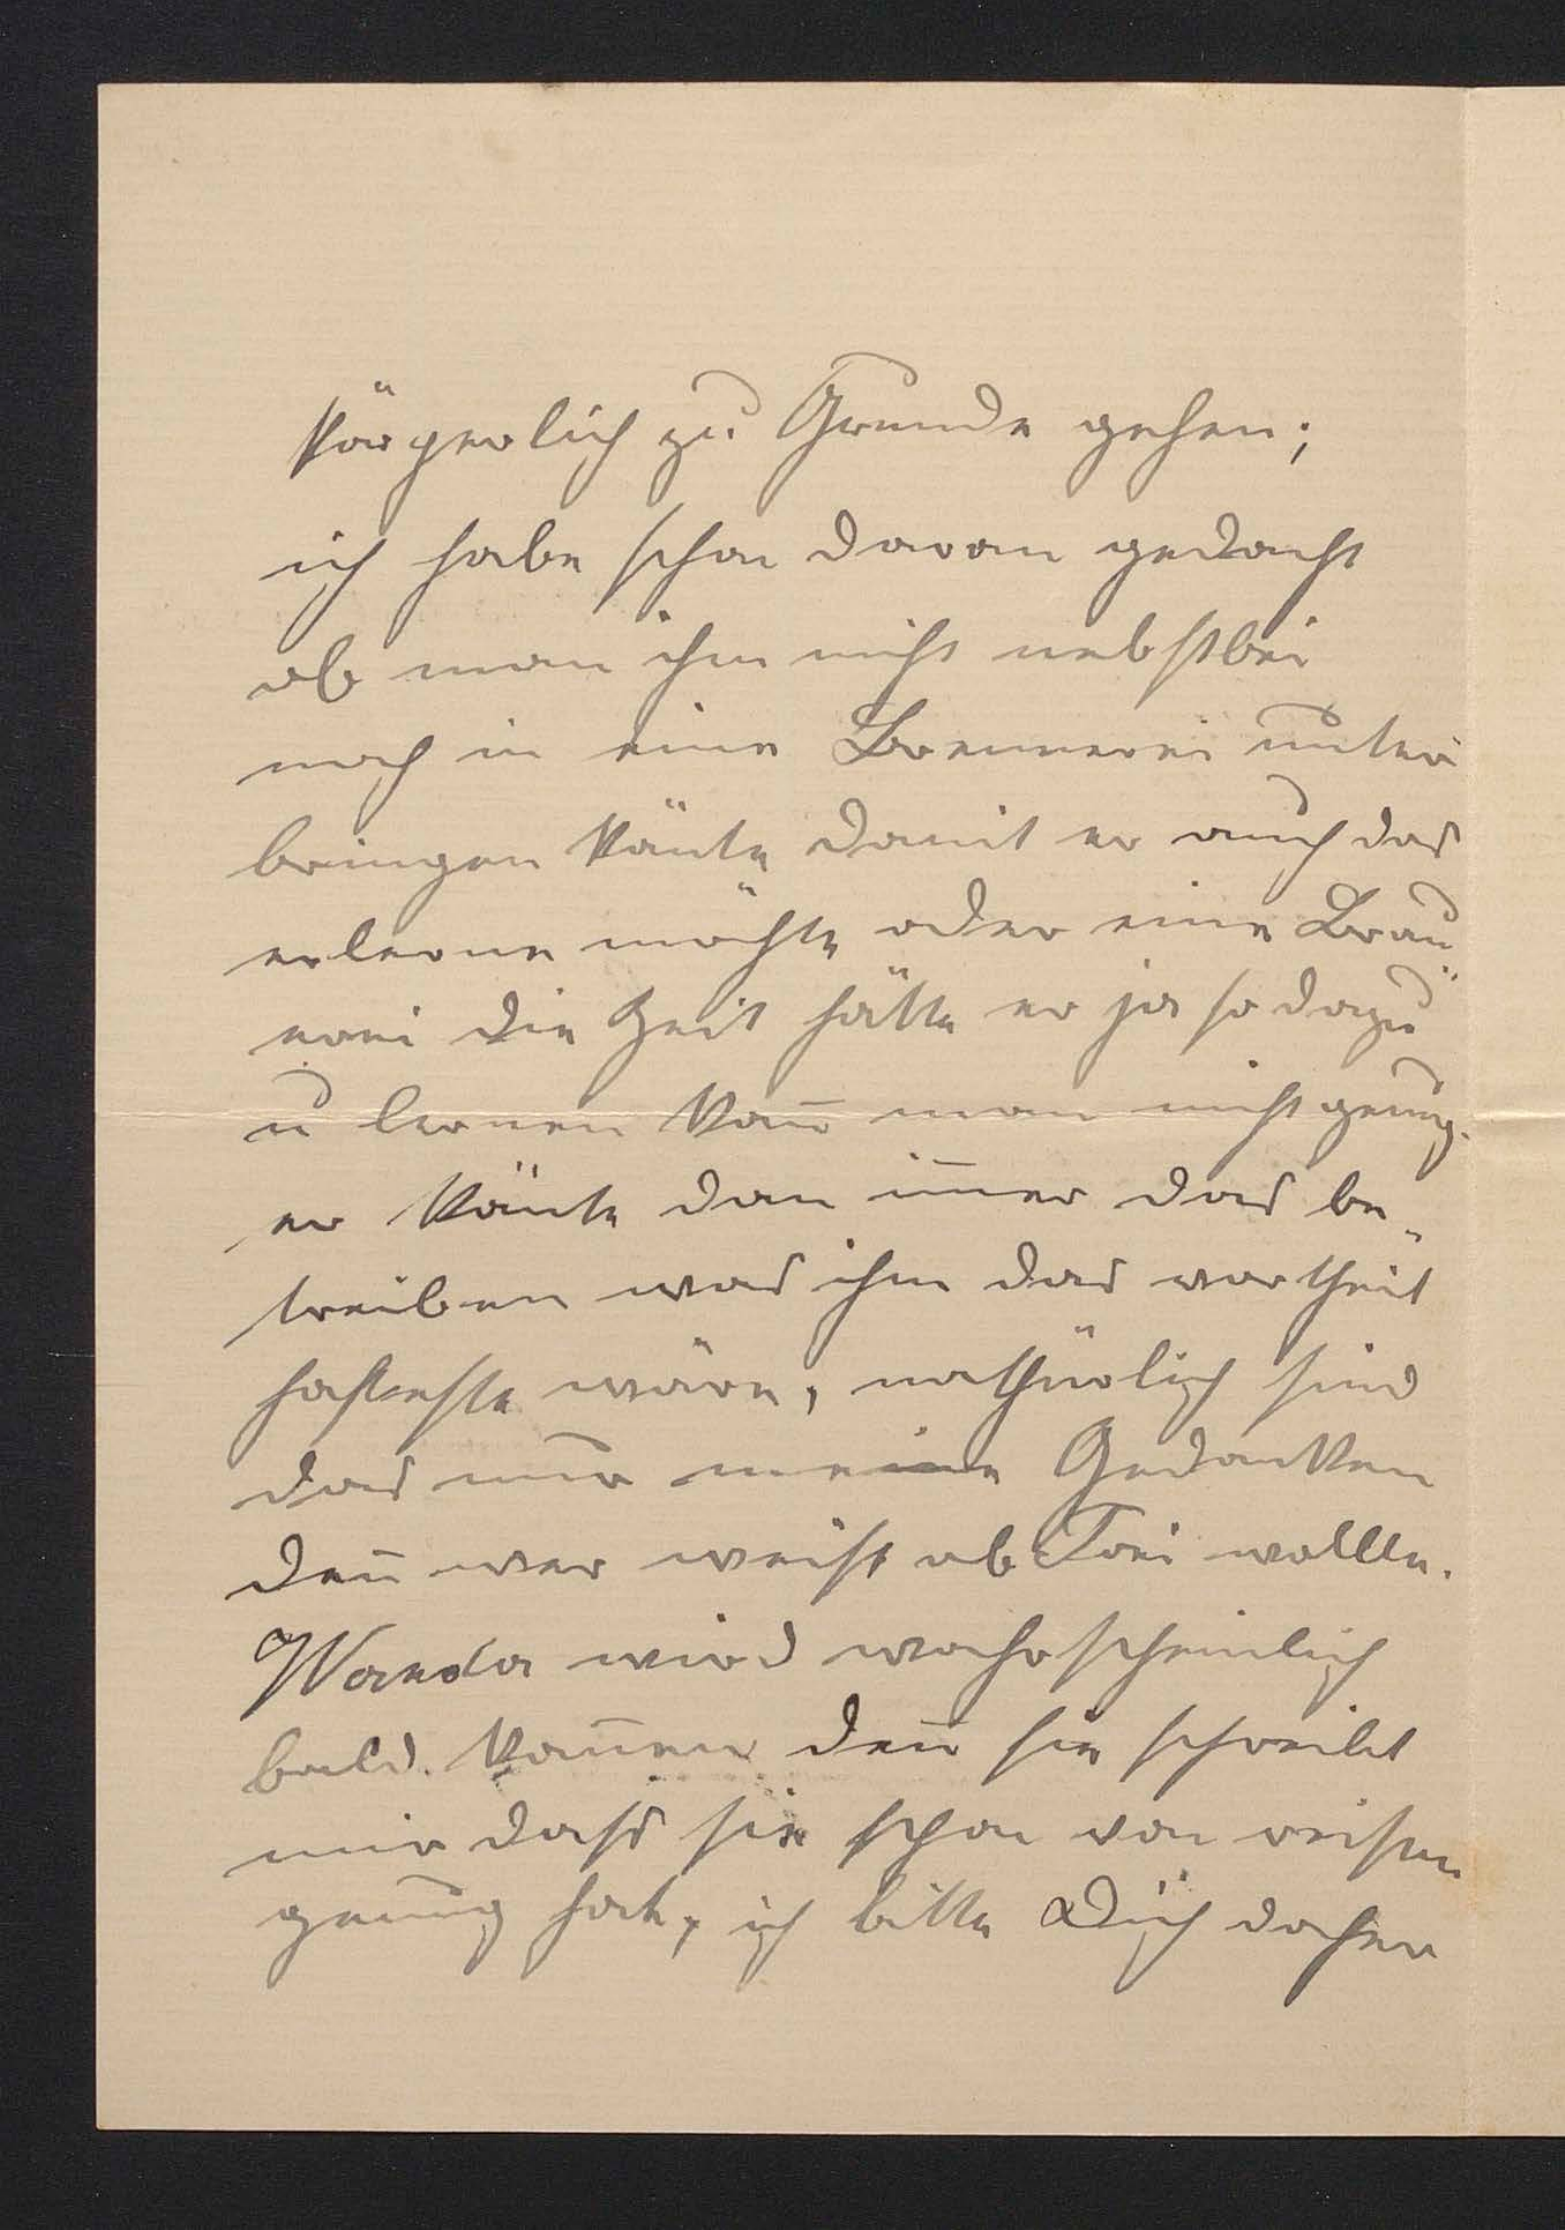 körperlich zu Grunde gehen;
ich habe schon daran gedacht
ob man ihn nicht nebstbei
noch in eine Brennerei unter
bringen könte damit er auch das
erlerne möchte oder eine Brau„
erei die Zeit hätte er ja so dazu
u lernen kan̅ man nicht genug.
er könte dan im̅er das be„
treiben was ihm das vortheil
hafteste wäre, nathürlich sind
das nur meine Gedanken
den̅ wer weist ob wollte.
Wanda wird wahrscheinlich
bald kom̅en den̅ sie schreibt
mir dass sie schon von reisen
genug hat, ich bitte Dich daher